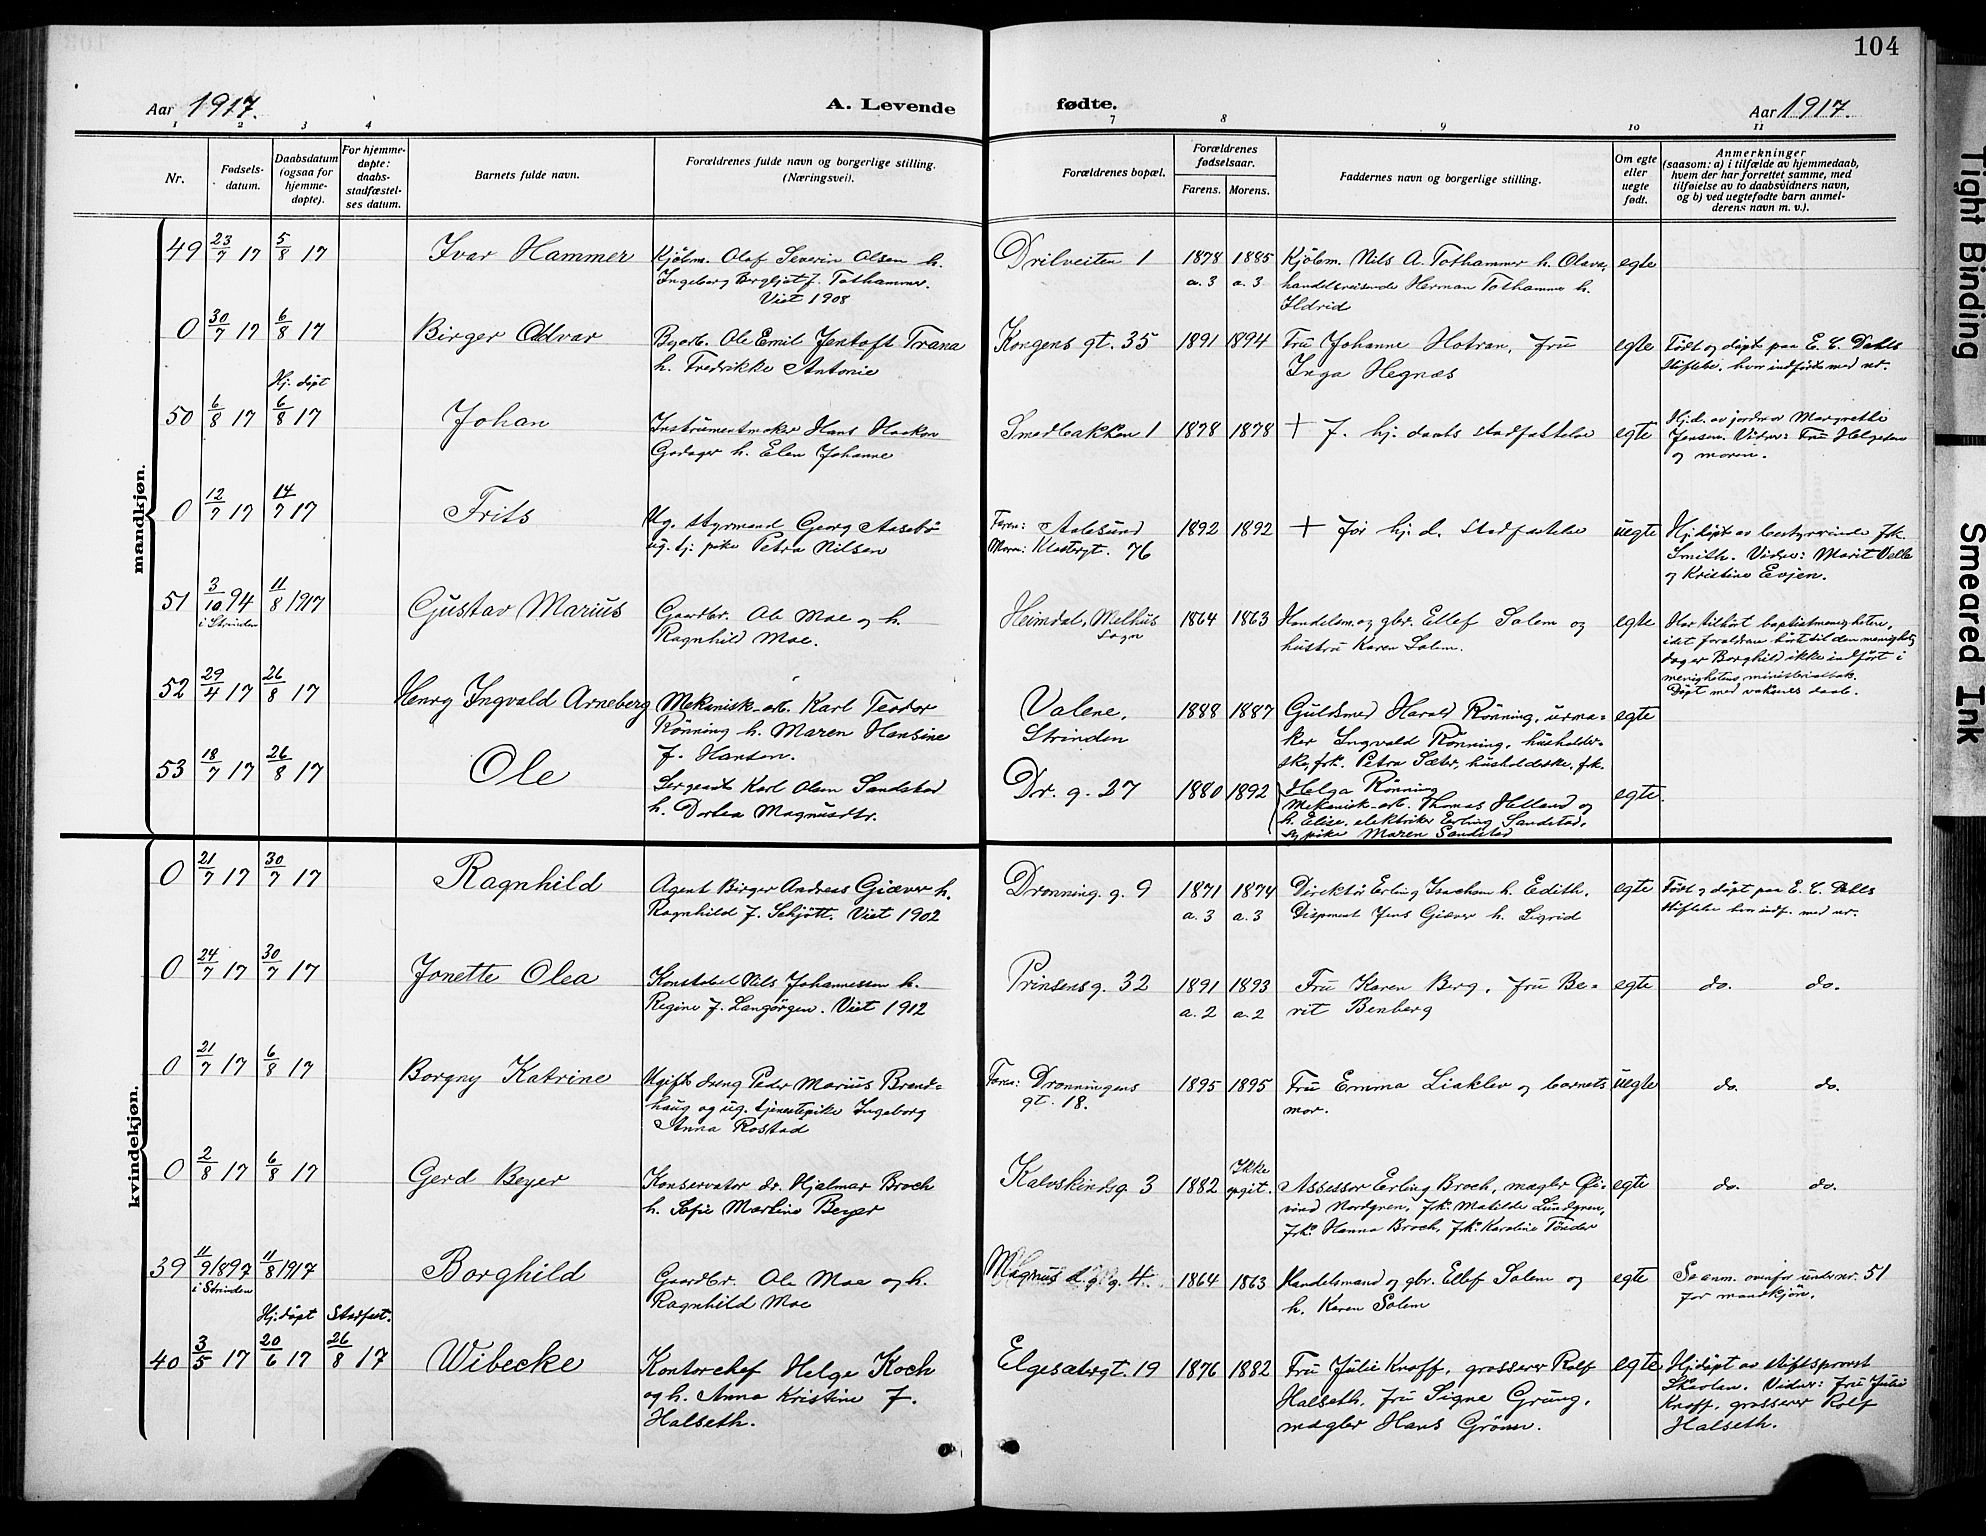 104
Aar 1917. A. Levende fødte. Aar 1917.
1 2 3 4 7 8 9 10 11
Nr.
Fødsels-
datum.
Daabsdatum
(ogsaa for
hjemme-
døpte).
For hjemme-
døpte:
daabs-
stadfæstel-
ses datum.
Barnets fulde navn.
Forældrenes fulde navn og borgerlige stilling.
(Næringsvei).
Forældrenes bopæl.
Forældrenes
fødselsaar.
Farens. Morens.
Faddernes navn og borgerlige stilling.
Om egte
eller
uegte
født.
Anmerkninger
(saasom: a) i tilfælde av hjemmedaab,
hvem der har forrettet samme, med
tilføielse av to daabsvidners navn,
og b) ved uegtefødte barn anmel-
derens navn m. v.).
mandkjøn.
49 23/7 17 5/8 17 Ivar Hammer
Kjøbm. Olaf Severin Olsen h.
Ingeborg Bergljot f. Tothammer.
Viet 1908
Drilveiten 1 1878 1885
a. 3 a. 3
Kjøbm. Nils A. Tothammer h. Olava,
handelsreisende Herman Tothammer h.
Ildrid
egte
0 30/7 17 6/8 17 Birger Oddvar
Byarb. Ole Emil Jentoft Trana
h. Fredrikke Antonie
Kongens gt. 35 1891 1894
Fru Johanne Hotran, fru
Inga Hegnæs
egte
Født og døpt paa E. C. Dahls
Stiftelse, hvor indførte med nr.
Hj. døpt
50 6/8 17 6/8 17 Johan
Instrumentmaker Hans Haakon
Godager h. Elen Johanne
Smedbakken 1 1878 1878
+ f. hj. daabs stadfæstelse
egte
Hj.d. av jordmor Margrethe
Jensen. Vidner: Fru Helgesen
og moren.
0 12/7 17 14/7 17 Frits
Ug. styrmand Georg Aasebø
ug. tj. pike Petra Nilsen
Faren: Aalesund
Moren: Klostergt. 76
1892 1892
+ før hj. d. stadfæstelse
uegte
Hj.døpt av bestyrerinde frk.
Smith. Vidner: Marit Velle
og Kristine Evjen.
51 3/10 94 11/8 1917 Gustav Marius
i Strinden
Gaardbr. Ole Moe og h.
Ragnhild Moe.
Heimdal, Melhus
Sogn
1864 1863
Handelsm. og gbr. Ellef Solem og
hustru Karen Solem.
egte
Har tilhørt baptistmenigheten,
idet forældrene hørte til den menighet,
dog er Borghild ikke indført i
menighetens ministerialbok.
Døpt med voksnes daab.
52 29/4 17 26/8 17 Henry Ingvald Arneberg
Mekanisk-arb. Karl Teodor
Rønning h. Maren Hansine
f. Hansen.
Valene,
Strinden
1888 1887
Guldsmed Harald Rønning, urma-
ker Ingvald Rønning, husholder-
ske, frk. Petra Sæter, husholderske, frk.
Helga Rønning
egte
53 18/7 17 26/8 17 Ole
Sergeant Karl Olsen Sandstad
h. Dortea Magnusdtr.
Dr. g. 27 1880 1892
Mekanisk-arb. Thomas Helland og
h. Elise, elektriker Erling Sandstad,
sypike Maren Sandstad
egte.
kvindekjøn.
0 21/7 17 30/7 17 Ragnhild
Agent Birger Andreas Giæver h.
Ragnhild f. Schjøtt. Viet 1902
Dronning. g. 9 1871 1874
a. 3 a. 3
Direktør Erling Isachsen h. Edith,
Disponent Jens Giæver h. Sigrid
egte
Født og døpt paa E. C. Dahls
Stiftelse hvor indf. med nr.
0 24/7 17 30/7 17 Jonette Olea
Konstabel Nils Johannessen h.
Regine f. Langørgen. Viet 1912
Prinsensg. 32 1891 1893
a. 2 a. 2
Fru Karen Berg, fru Be-
rit Benberg
egte
do. do.
0 21/7 17 6/8 17 Borgny Katrine
Ugift dreng Peder Marius Brand-
haug og ug. tjenestepike Ingeborg
Anna Rostad
Faren: Dronningens
gt. 18.
1895 1895
Fru Emma Liaklev og barnets
mor.
uegte
do. do.
0 2/8 17 6/8 17 Gerd Beyer
Konservator dr. Hjalmar Broch
h. Sofie Martine Beyer
Kalvskindsg. 3 1882 Ikke
opgit.
Assessor Erling Broch, mægler Øi-
vind Nordgren, frk. Matilde Lundgren,
frk. Hanna Broch, frk. Karoline Tønder
egte
do. do.
39 11/9 1897 11/8 1917 Borghild
i Strinden
Gaardbr. Ole Moe og h.
Ragnhild Moe
Magnus d. g. g. 4. 1864 1863
Handelsmand og gbr. Ellef Solem og
h. Karen Solem
egte
Se anm. ovenfor under nr. 51
for mandkjøn.
Hj.døpt Stadfæst.
40 3/5 17 20/6 17 26/8 17 Wibecke
Kontorchef Helge Koch
og h. Anna Kristine f.
Halseth.
Elgesætergt. 19 1876 1882
Fru Julie Knoff, grosserer Rolf
Halseth, fru Signe Grung,
mægler Hans Grønn.
egte.
Hj.døpt av stiftsprovst
Skaolan. Vidner: fru Julie
Knoff, grosserer Rolf
Halseth.
Tight Binding
Smeared Ink